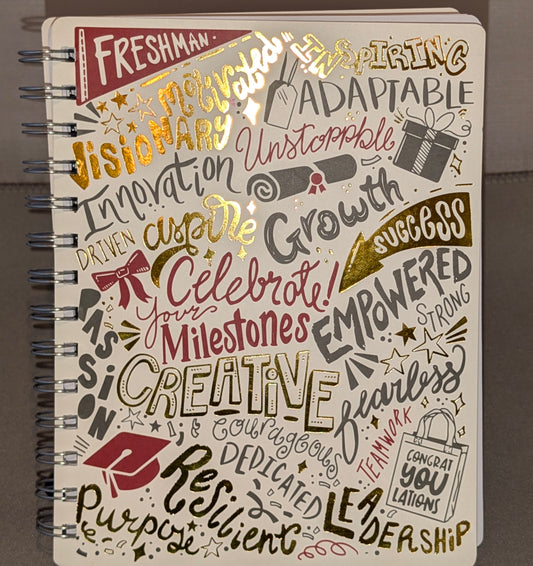 FRESHMAN
motivated
INSPIRING
VISIONARY
ADAPTABLE
Unstoppble
Innovation
Growth
DRIVEN
aspire
SUCCESS
Celebrate!
your
Milestones
EMPOWERED
STRONG
PASSION
CREATIVE
fearless
courageous
TEAMWORK
DEDICATED
CONGRAT
YOU
LATIONS
Resilient
Purpose
LEADERSHIP